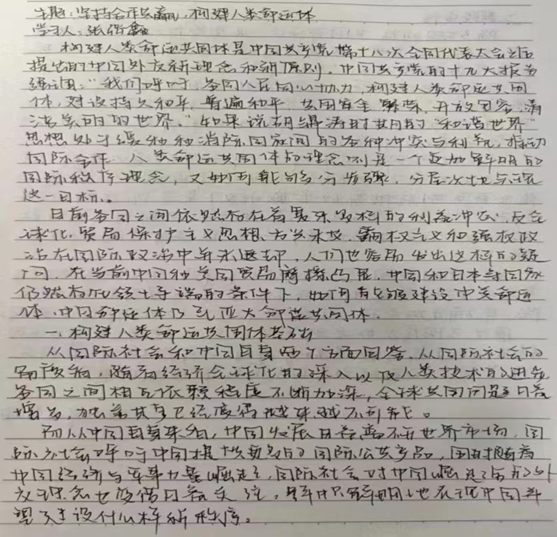 主题:坚持合作共赢,构建人类命运体
学习人:张
构建人类命运共同体是中国共产党第十八次全国代表大会之后
提出的中国外交新理念和新原则,中国共产党的十九大报告
强调:"我们呼吁,各国人民同心协力,构建人类命运共同
体,建设持久和平、普遍和平、共同安全、繁荣、开放包容、清
洁美丽的世界。"如果说胡锦涛时期的"和谐世界"
思想处于缓和和消除国家间的各种冲突与利,推动
国际合作,人类命运共同体的理念则是一个更加鲜明的
国际秩序理念,又如何能够分步骤,分层次地去实现
这一目标。
目前各国之间依然存在着错综的利益冲突,反全
球化、贸易保护主义思想方兴未艾,霸权主义和强权政
治在国际政治中并未退却,人们也容易发出这样的疑
问,在当前中国和美国贸易摩擦凸显,中国和日本等国家
仍然存在领土争端的条件下,如何有效建设中美命运
体、中日命运体乃至亚太命运共同体。
一、构建人类命运共同体基础
从国际社会和中国自身两个方面回答,从国际社会的
角度看,随着经济全球化的深入以及人类技术的进步
各国之间相互依赖程度不断加深,全球共同问题日益
增多,独善其身已经变得越来越不可能。
而从中国自身来看,中国发展日益离不开世界市场,国
际社会呼吁中国提供更多的国际公共产品,同时随着
中国经济与军事力量崛起,国际社会对中国崛起之后的外
交理念也变得日益关注,中国鲜明地表现中国希
望建设什么样新秩序。